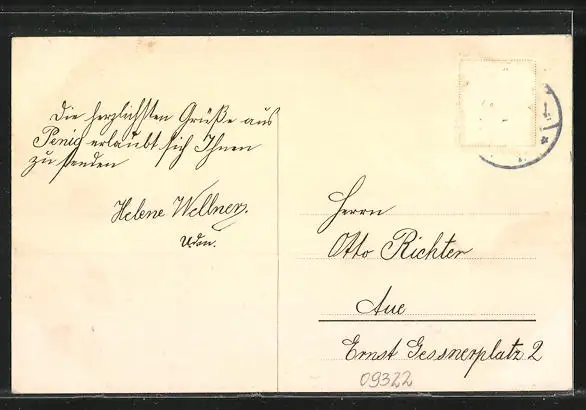 Die herzlichsten Grüße aus
Penig erlaubt sich Ihnen
zu senden
Helene Wellner.
Herrn
Otto Richter
Aue
Ernst Gessnerplatz 2
09322